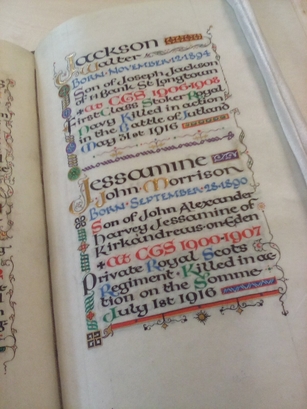 Jackson
Walter
Born · November · 12 · 1894
Son of Joseph Jackson
of Bank St Longtown
+ at CGS 1906-1908
First Class Stoker Royal
Navy Killed in action
in the Battle of Jutland
May 31st 1916
Jessamine
John · Morrison
Born · September · 28 · 1890
Son of John Alexander
Harvey Jessamine of
Kirkandrews-on-Eden
+ at CGS 1900-1907
Private Royal Scots
Regiment · Killed in ac
tion on the Somme
July 1st 1916